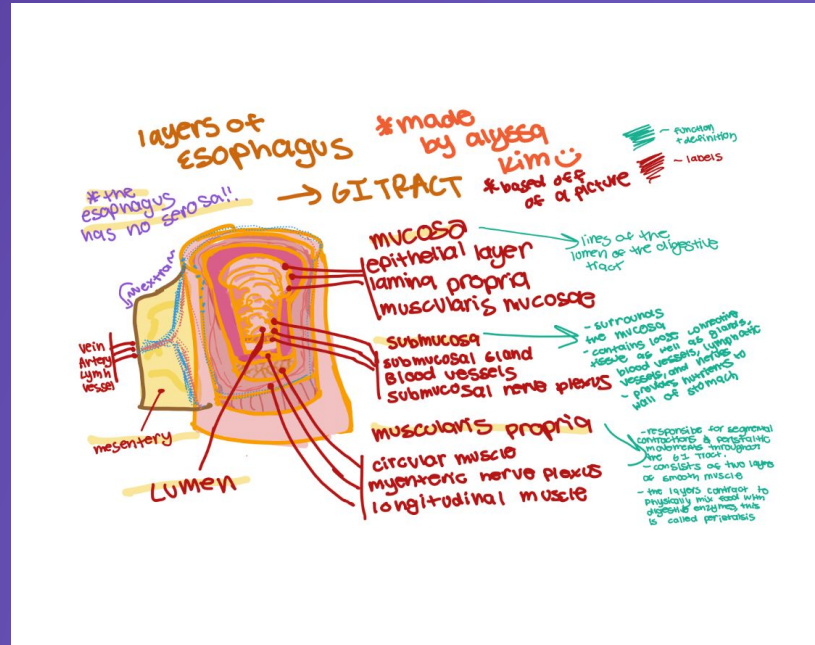 layers of
ESOPHAGUS
→ GI TRACT
*made
by alyssa
kim
*based off
of a picture
~ function
+ definition
~ labels
*the
esophagus
has no serosa!!
extra
mucosa
epithelial layer
lamina propria
muscularis mucosae
lines of the
lumen of the digestive
tract
submucosa
submucosal gland
Blood vessels
submucosal nerve plexus
- surrounds
the mucosa
- contains loose connective
tissue as well as glands,
blood vessels, lymphatic
vessels, and nerves
- provides nutrients to
wall of stomach
muscularis propria
circular muscle
myenteric nerve plexus
longitudinal muscle
- responsible for segmental
contractions & peristaltic
movements throughout
the GI Tract.
- consists of two layers
of smooth muscle
- the layers contract to
physically mix food with
digestive enzymes, this
is called peristalsis
vein
Artery
Lymph
vessel
mesentery
Lumen